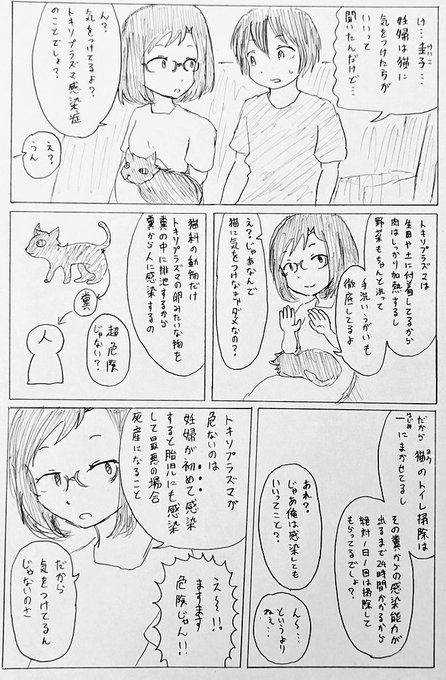 け…圭子…
妊婦は猫に
気をつけたらが
いいって
聞いたんだけど…
ん？
気をつけてるよ？
トキソプラズマ感染症
のことでしょ？
え？
うん
トキソプラズマは
生肉や土に付着してるから
肉はしっかり加熱するし
野菜もちゃんと洗って
手洗いうがいも
徹底してるよ
え？じゃあなんで
猫に気をつけなきゃダメなの？
猫科の動物だけ
トキソプラズマの卵みたいな物を
糞の中に排泄するから
糞から人に感染するの
糞
人
超危険
じゃない？
だから猫のトイレ掃除は
一にまかせてるし
はじめ
その糞からの感染能力が
出るまで24時間かかるから
絶対1日1回は掃除して
もらってるでしょ？
あれ？
じゃあ俺は感染しても
いいってこと？
ん～…
というより
ねぇ…
トキソプラズマが
危ないのは
妊婦が初めて感染
すると胎児にも感染
して最悪の場合
死産になること
え～!!
ますます
危険じゃん!!
だから
気をつけてるん
じゃないのさ